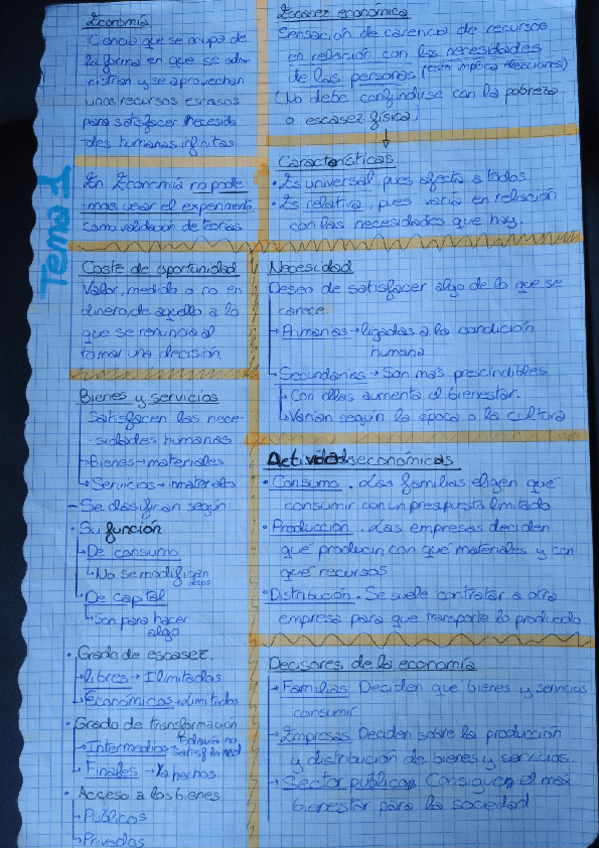 Economía
Ciencia que se ocupa de
la forma en que se admi-
nistran y se aprovechan
unos recursos escasos
para satisfacer necesida-
des humanas infinitas.
En Economía no pode-
mos usar el experimento
como validación de teorías
Tema 1
Escasez económica
Sensación de carencia de recursos
en relación con las necesidades
de las personas (esto implica elecciones)
(No debe confundirse con la pobreza
o escasez física)
Características
• Es universal, pues afecta a todos
• Es relativa, pues varía en relación
con las necesidades que hay.
Coste de oportunidad
Valor, medido o no en
dinero, de aquello a lo
que se renuncia al
tomar una decisión
Necesidad
Deseo de satisfacer algo de lo que se
carece.
→ Primarias → ligadas a la condición
humana
→ Secundarias → Son más prescindibles
→ Con ellas aumenta el bienestar.
→ Varían según la época o la cultura
Bienes y servicios
Satisfacen las nece-
sidades humanas
→ Bienes → materiales
→ Servicios → inmateriales
- Se clasifican según:
• Su función
→ De consumo
→ No se modifican
→ De capital
→ Son para hacer
algo
• Grado de escasez.
→ libres → Ilimitados
→ Económicos → limitados
• Grado de transformación
→ Intermedios → Todavía no
→ Finales → Ya hechos
• Acceso a los bienes
→ Públicos
→ Privados
Actividades económicas
• Consumo. Las familias eligen qué
consumir con un presupuesto limitado
• Producción. Las empresas deciden
qué producir, con qué materiales y con
qué recursos
• Distribución. Se suele contratar a otra
empresa para que transporte lo producido
Decisores de la economía
→ Familias Deciden qué bienes y servicios
consumir
→ Empresas Deciden sobre la producción
y distribución de bienes y servicios.
→ Sector público Consiguen el max
bienestar para la sociedad